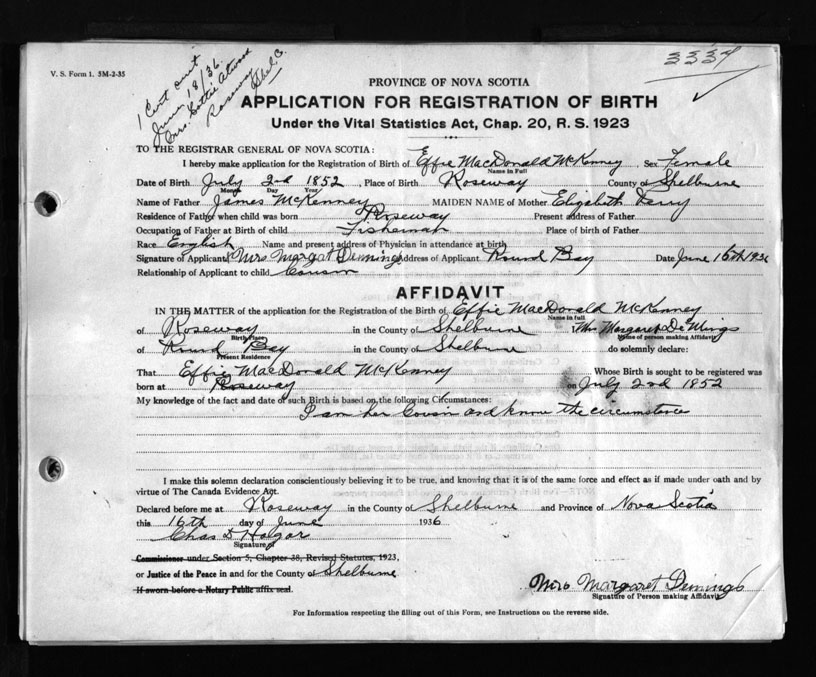 V. S. Form 1. 5M-2-35
1 Cert sent
June 18/36.
Mrs. Lottie Atwood
Roseway
Shel. Co.
3334
PROVINCE OF NOVA SCOTIA
APPLICATION FOR REGISTRATION OF BIRTH
Under the Vital Statistics Act, Chap. 20, R. S. 1923
TO THE REGISTRAR GENERAL OF NOVA SCOTIA:
I hereby make application for the Registration of Birth of Effie MacDonald McKenney Sex Female
Name in Full
Date of Birth July 2nd 1852, Place of Birth Roseway County of Shelburne
Month Day Year
Name of Father James McKenney MAIDEN NAME of Mother Elizabeth Perry
Residence of Father when child was born Roseway Present address of Father
Occupation of Father at Birth of child Fisherman Place of birth of Father
Race English Name and present address of Physician in attendance at birth
Signature of Applicant Mrs Margat Demings Address of Applicant Round Bay Date June 16th 1936
Relationship of Applicant to child Cousin
AFFIDAVIT
IN THE MATTER of the application for the Registration of the Birth of Effie MacDonald McKenney
Name in full
of Roseway in the County of Shelburne I Mrs Margaret DeMings
Birth Place Name of person making Affidavit
of Round Bay in the County of Shelburne do solemnly declare:
Present Residence
That Effie MacDonald McKenney Whose Birth is sought to be registered was
born at Roseway on July 2nd 1852
My knowledge of the fact and date of such Birth is based on the following Circumstances:
I am her Cousin and know the circumstance
I make this solemn declaration conscientiously believing it to be true, and knowing that it is of the same force and effect as if made under oath and by
virtue of The Canada Evidence Act.
Declared before me at Roseway in the County of Shelburne and Province of Nova Scotia
this 16th day of June 1936
Chas S Hagar
Signature of
Commissioner under Section 5, Chapter 38, Revised Statutes, 1923,
or Justice of the Peace in and for the County of Shelburne
If sworn before a Notary Public affix seal.
Mrs Margaret Demings
Signature of Person making Affidavit
For Information respecting the filling out of this Form, see Instructions on the reverse side.